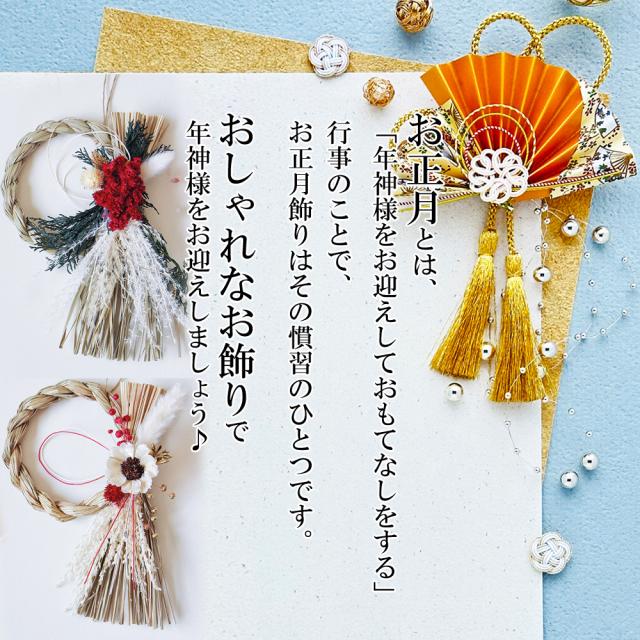 お正月とは、
「年神様をお迎えしておもてなしをする」
行事のことで、
お正月飾りはその慣習のひとつです。
おしゃれなお飾りで
年神様をお迎えしましょう♪